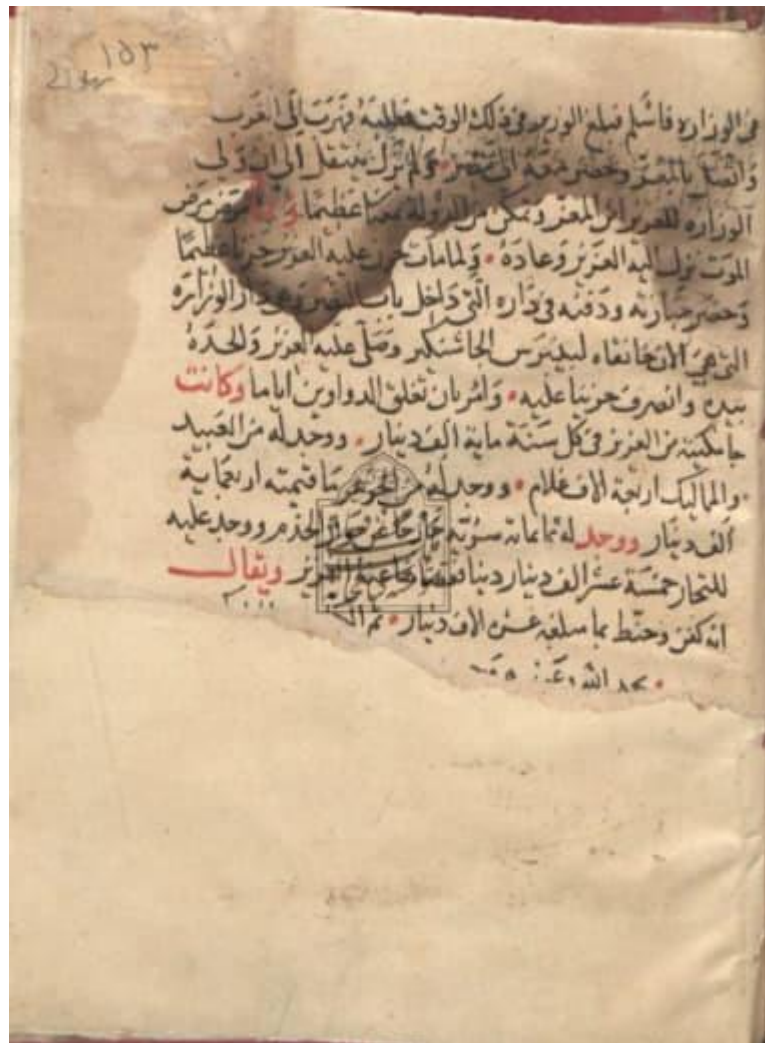 ١٥٣
فى الوزاره فاسلم فبلغ الوزير فى ذلك الوقت فطلبه فهرب الى الغرب
واتصل بالمعز وحضر معه الى مصر ولم يزل ينتقل الى ان ولى
الوزاره للعزيز ابن المعز وتمكن من الدولة معه عظيما ولما مرض مرض
الموت نزل اليه العزيز وعاده ولما مات حزن عليه العزيز حزنا عظيما
وحضر جنازته ودفنه فى داره التى داخل باب النصر وهى دار الوزاره
التى هى الان خانقاه لبيبرس الجاشنكير وصلى عليه العزيز والحده
بيده وانصرف حزينا عليه وامر بان تغلق الدواوين اياما وكانت
جامكيته من العزيز فى كل سنة ماية الف دينار ووجد له من العبيد
والمماليك اربعة الاف غلام ووجد له من الجوهر ما قيمته اربعماية
الف دينار ووجد له ثمانمائة سرية خارجا عن جوار الخدم ووجد عليه
للتجار خمسة عشر الف دينار دينا فقضاها عنه العزيز ويقال
انه كفن وحنط بما مبلغه عشره الاف دينار تم
بحمد الله وعونه